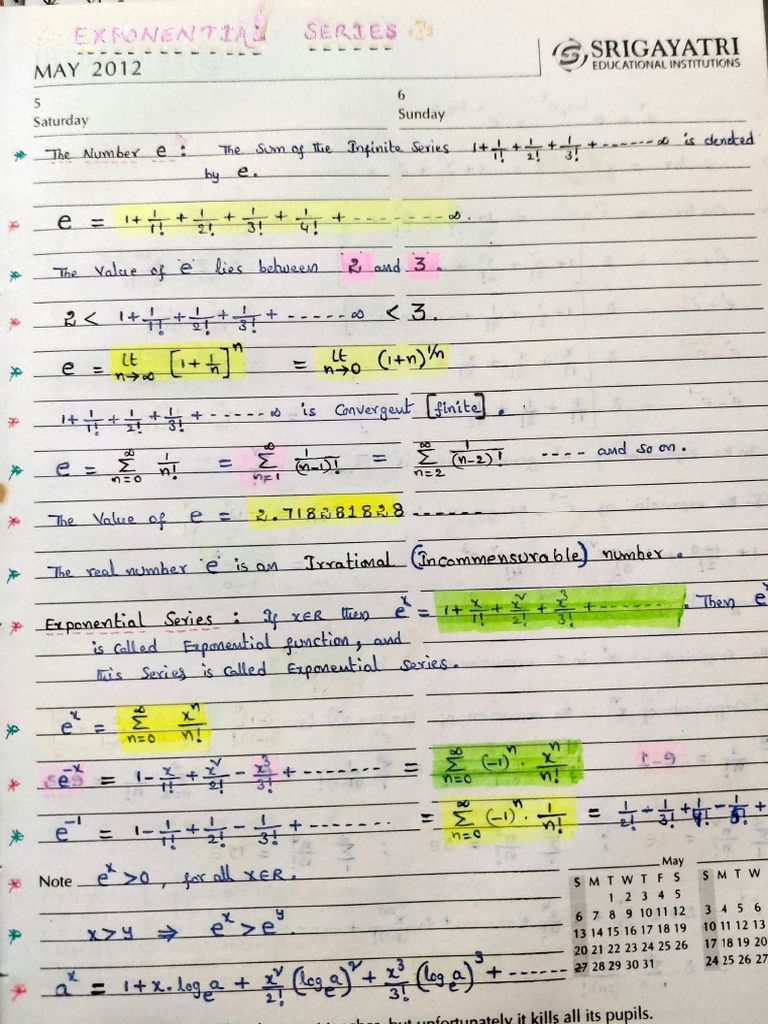 EXPONENTIAL SERIES
SRIGAYATRI
EDUCATIONAL INSTITUTIONS
MAY 2012
5
Saturday
6
Sunday
* The Number e : The Sum of the Infinite Series 1+1/1!+1/2!+1/3!+-------∞ is denoted
by e.
* e = 1+1/1!+1/2!+1/3!+1/4!+---------∞.
* The Value of 'e' lies between 2 and 3.
* 2 < 1+1/1!+1/2!+1/3!+-----∞ < 3.
* e = Lt n→∞ [1+1/n]^n = Lt n→0 (1+n)^1/n
* 1+1/1!+1/2!+1/3!+-----∞ is Convergent [finite].
* e = ∞ Σ n=0 1/n! = ∞ Σ n=1 1/(n-1)! = ∞ Σ n=2 1/(n-2)! ---- and so on.
* The Value of e = 2.718281828------
* The real number 'e' is an Irrational (Incommensurable) number.
* Exponential Series : If x∈R then e^x = 1+x/1!+x²/2!+x³/3!+-------. Then e^x
is called Exponential function, and
this Series is called Exponential series.
* e^x = ∞ Σ n=0 x^n/n!
* e^-x = 1-x/1!+x²/2!-x³/3!+------- = ∞ Σ n=0 (-1)^n . x^n/n!
* e^-1 = 1-1/1!+1/2!-1/3!+------- = ∞ Σ n=0 (-1)^n . 1/n! = 1/2!-1/3!+1/4!-1/5!+
* Note e^x >0, for all x∈R.
* x>y ⇒ e^x > e^y.
* a^x = 1+x.log_e a + x²/2! (log_e a)² + x³/3! (log_e a)³ + ------
May
S M T W T F S
1 2 3 4 5
6 7 8 9 10 11 12
13 14 15 16 17 18 19
20 21 22 23 24 25 26
27 28 29 30 31
S M T W
3 4 5 6
10 11 12 13
17 18 19 20
24 25 26 27
but unfortunately it kills all its pupils.